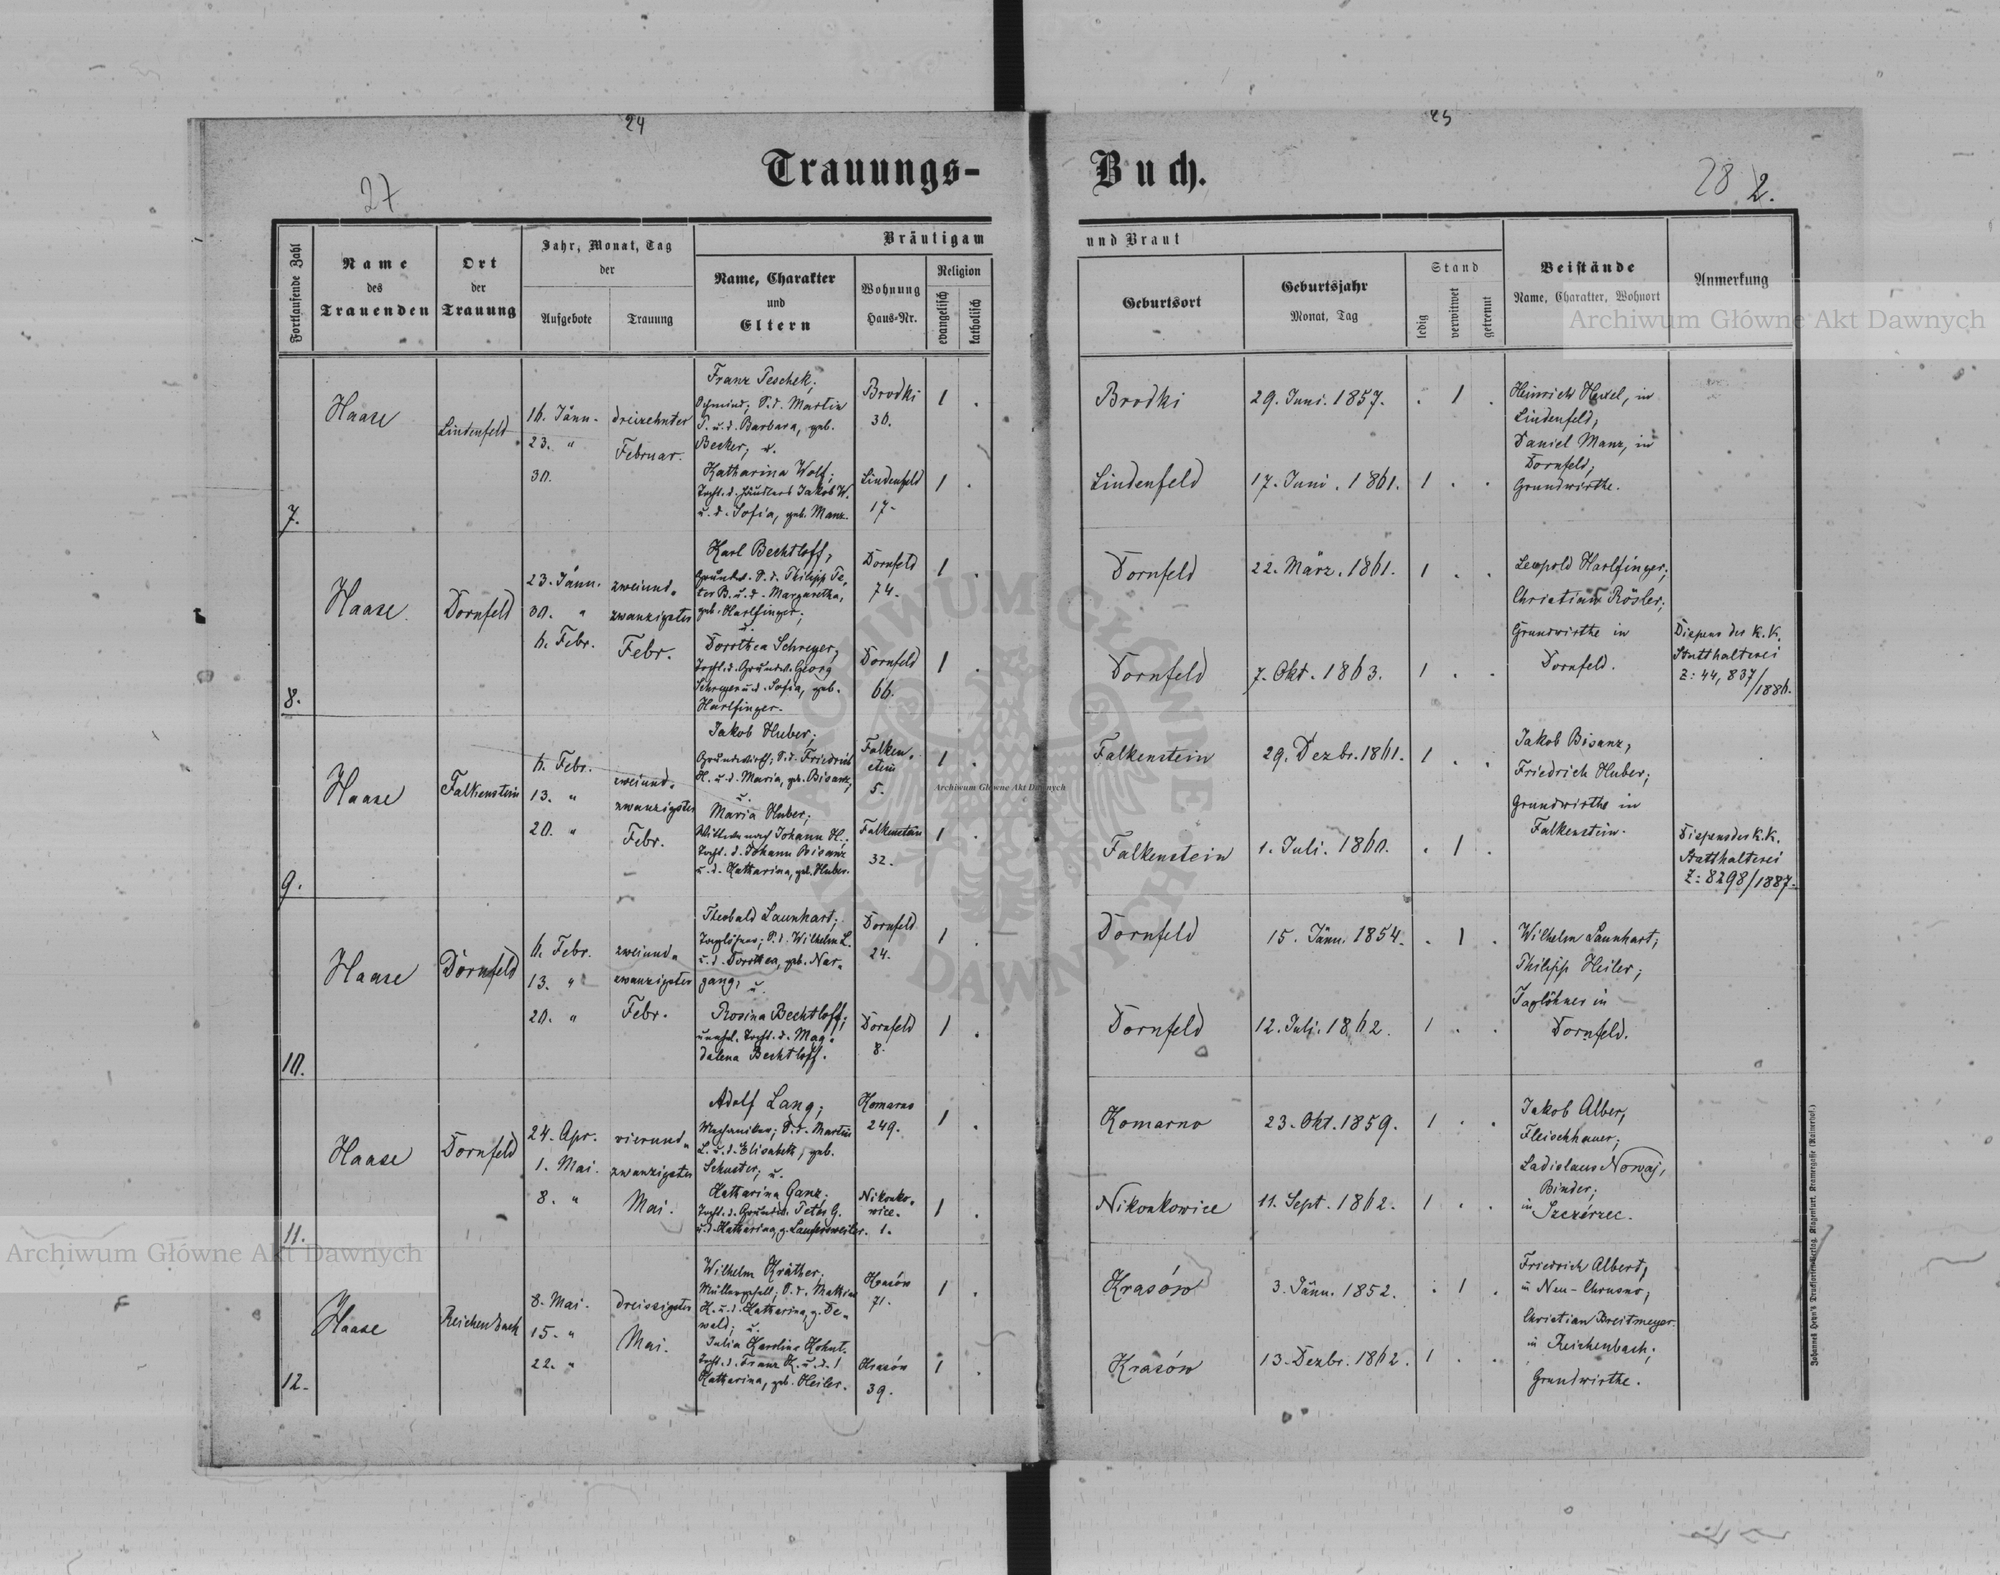 24
25
Trauungs-
Buch.
27
28
2.
Fortlaufende Zahl
Name
des
Trauenden
Ort
der
Trauung
Jahr, Monat, Tag
der
Aufgebote
Trauung
Bräutigam
und Braut
Name, Charakter
und
Eltern
Wohnung
Haus-Nr.
Religion
evangelisch
katholisch
Geburtsort
Geburtsjahr
Monat, Tag
Stand
ledig
verwitwet
getrennt
Beistände
Name, Charakter, Wohnort
Anmerkung
7.
Haase
Lindenfeld
16. Jänn.
23. "
30.
dreizehnter
Februar.
Franz Peschek;
Schmied; S. d. Martin
P. u. d. Barbara, geb.
Becker; u.
Katharina Wolf;
Tocht. d. Händlers Jakob W.
u. d. Sofia, geb. Manz.
Brodki
30.
Lindenfeld
17.
1 .
1 .
Brodki
Lindenfeld
29. Juni. 1857.
17. Juni. 1861.
. 1 .
1 . .
Heinrich Hexel, in
Lindenfeld,
Daniel Manz, in
Dornfeld;
Grundwirthe.
8.
Haase.
Dornfeld
23. Jänn.
30. "
6. Febr.
zweiund-
zwanzigster
Febr.
Karl Bechtloff,
Grundw. S. d. Philipp Pe-
ter B. u. d. Margaretha,
geb. Harlfinger;
u.
Dorothea Schreyer;
Tocht. d. Grundw. Georg
Schreyer u. d. Sofia, geb.
Harlfinger.
Dornfeld
74.
Dornfeld
66.
1 .
1 .
Dornfeld
Dornfeld
22. März. 1861.
7. Okt. 1863.
1 . .
1 . .
Leopold Harlfinger;
Christian Rösler;
Grundwirthe in
Dornfeld.
Dispens der K.K.
Statthalterei
Z: 44,837/1886.
9.
Haase
Falkenstein
6. Febr.
13. "
20. "
zweiund-
zwanzigster
Febr.
Jakob Huber;
Grundwirth; S. d. Friedrich
H. u. d. Maria, geb. Bisanz;
u.
Maria Huber;
Wittwe nach Johann H.;
Tocht. d. Johann Bisanz
u. d. Katharina, geb. Huber.
Falken-
stein
5.
Falkenstein
32.
1 .
1 .
Falkenstein
Falkenstein
29. Dezbr. 1861.
1. Juli. 1860.
1 . .
. 1 .
Jakob Bisanz,
Friedrich Huber;
Grundwirthe in
Falkenstein.
Dispens der K.K.
Statthalterei
Z: 8298/1887.
10.
Haase
Dornfeld
6. Febr.
13. "
20. "
zweiund-
zwanzigster
Febr.
Theobald Launhart;
Taglöhner; S. d. Wilhelm L.
u. d. Dorothea, geb. Nar-
gang, u.
Rosina Bechtloff;
unehel. Tocht. d. Mag-
dalena Bechtloff.
Dornfeld
24.
Dornfeld
8.
1 .
1 .
Dornfeld
Dornfeld
15. Jänn. 1854.
12. Juli. 1862.
. 1 .
1 . .
Wilhelm Launhart;
Philipp Heiler;
Taglöhner in
Dornfeld.
11.
Haase
Dornfeld
24. Apr.
1. Mai.
8. "
vierund-
zwanzigster
Mai.
Adolf Lang;
Mechaniker; S. d. Martin
L. u. d. Elisabeth, geb.
Schuster; u.
Katharina Ganz;
Tocht. d. Grundw. Peter G.
u. d. Katharina, g. Laufersweiler.
Komarno
249.
Nikonko-
wice.
1.
1 .
1 .
Komarno
Nikonkowice
23. Okt. 1859.
11. Sept. 1862.
1 . .
1 . .
Jakob Alber,
Fleischhauer;
Ladislaus Nowaj,
Binder;
in Szczérzec.
12.
Haase
Reichenbach
8. Mai.
15. "
22. "
dreissigster
Mai.
Wilhelm Kräther;
Müllergesell; S. d. Mathias
K. u. d. Katharina, g. De-
wald; u.
Julia Karolina Kohut.
Tocht. d. Franz K. u. d.
Katharina, geb. Heiler.
Krasów
71.
Krasów
39.
1 .
1 .
Krasów
Krasów
3. Jänn. 1852.
13. Dezbr. 1862.
. 1 .
1 . .
Friedrich Albert,
in Neu-Chrusno,
Christian Breitmeyer.
in Reichenbach;
Grundwirthe.
Johannes Heyn's Drucksorten-Verlag, Klagenfurt, Kramergasse (Rainerhof.)
Archiwum Główne Akt Dawnych
Archiwum Główne Akt Dawnych
Archiwum Główne Akt Dawnych
ARCHIWUM GŁÓWNE AKT DAWNYCH